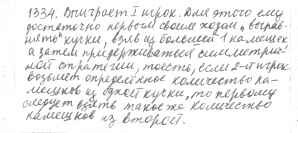 1334. Выиграет I игрок. Для этого ему
достаточно первым своим ходом „вырав-
нять" кучки, взяв из большей 1 камешек
а затем придерживаться симметрич-
ной стратегии, тоесть, если 2-й игрок
возьмет определённое количество ка-
мешков из одной кучки, то первому
следует взять такое же количество
камешков из второй.